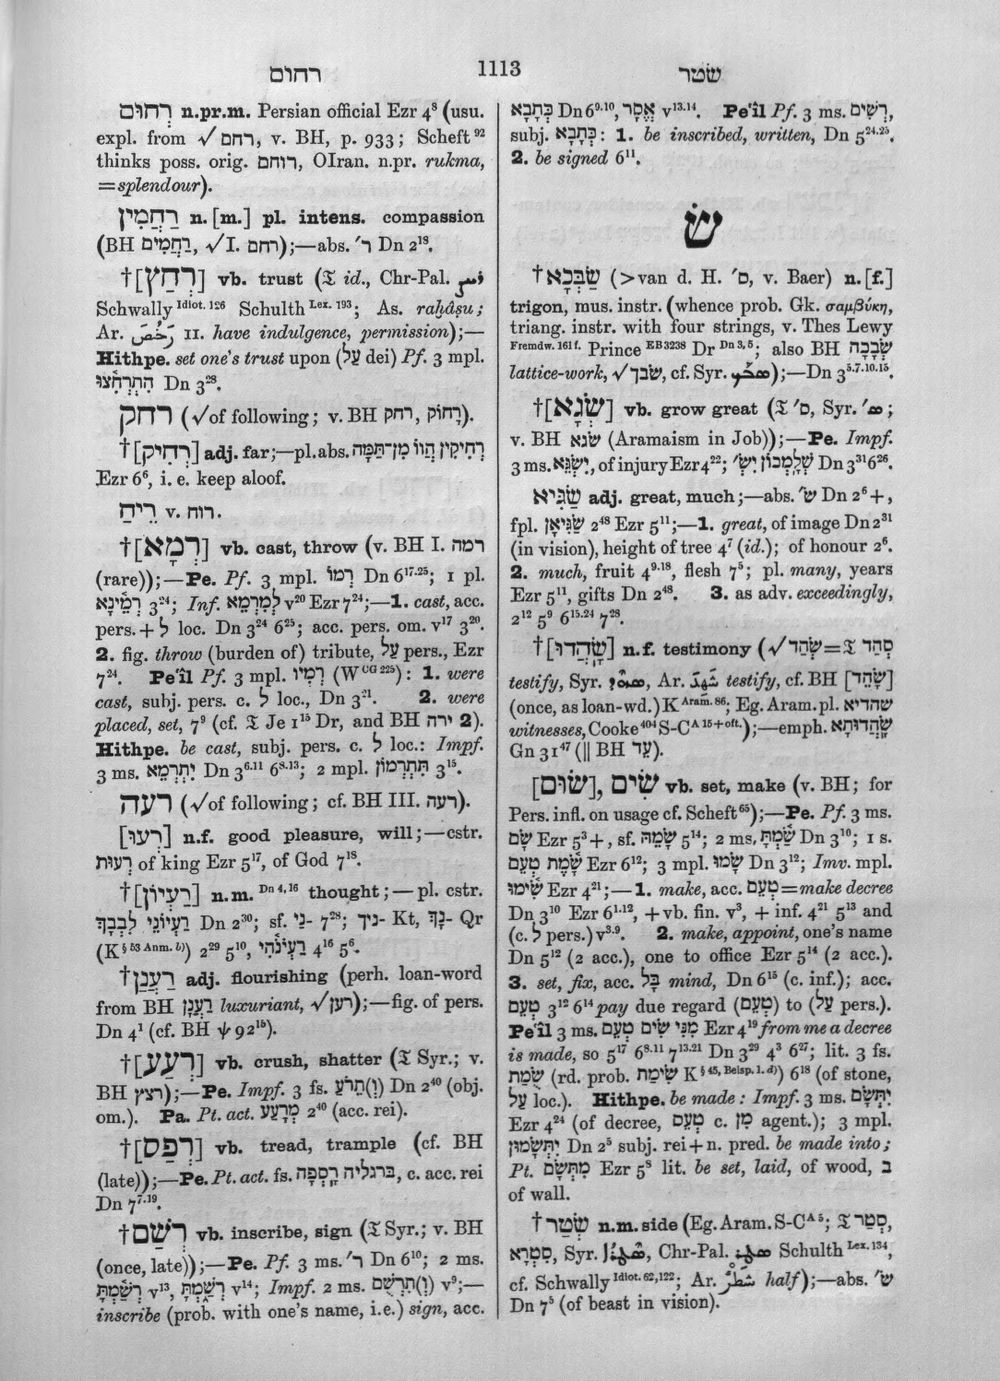 רחום 1113 שׂטר
רְחוּם n.pr.m. Persian official Ezr 4⁸ (usu.
expl. from √ רחם, v. BH, p. 933; Scheft⁹²
thinks poss. orig. רוחם, OIran. n.pr. rukma,
=splendour).
רַחֲמִין n. [m.] pl. intens. compassion
(BH רַחֲמִים, √I. רחם);—abs. ר׳ Dn 2¹⁸.
†[רְחַץ] vb. trust (𝔗 id., Chr-Pal.
Schwally Idiot. 126 Schulth Lex. 193; As. raḫâṣu;
Ar. رَخُصَ II. have indulgence, permission);—
Hithpe. set one's trust upon (עַל dei) Pf. 3 mpl.
הִתְרְחִצוּ Dn 3²⁸.
רחק (√of following; v. BH רחק, רָחוֹק).
†[רְחִיק] adj. far;—pl. abs. רְחִיקִין הֲווֹ מִן־תַּמָּה
Ezr 6⁶, i. e. keep aloof.
רֵיחַ v. רוח.
†[רְמָא] vb. cast, throw (v. BH I. רמה
(rare));—Pe. Pf. 3 mpl. רְמוֹ Dn 6¹⁷·²⁵; 1 pl.
רְמֵינָא 3²⁴; Inf. לְמִרְמֵא v²⁰ Ezr 7²⁴;—1. cast, acc.
pers. + לְ loc. Dn 3²⁴ 6²⁵; acc. pers. om. v¹⁷ 3²⁰.
2. fig. throw (burden of) tribute, עַל pers., Ezr
7²⁴. Peʿîl Pf. 3 mpl. רְמִיו (W CG 225): 1. were
cast, subj. pers. c. לְ loc., Dn 3²¹. 2. were
placed, set, 7⁹ (cf. 𝔗 Je 1¹⁵ Dr, and BH ירה 2).
Hithpe. be cast, subj. pers. c. לְ loc.: Impf.
3 ms. יִתְרְמֵא Dn 3⁶·¹¹ 6⁸·¹³; 2 mpl. תִּתְרְמוֹן 3¹⁵.
רעה (√of following; cf. BH III. רעה).
[רְעוּ] n.f. good pleasure, will;—cstr.
רְעוּת of king Ezr 5¹⁷, of God 7¹⁸.
†[רַעְיוֹן] n.m. Dn 4, 16 thought;—pl. cstr.
רַעְיוֹנֵי לִבְבָךְ Dn 2³⁰; sf. ־נַי 7²⁸; ־ניך Kt, ־נָךְ Qr
(K § 53 Anm. b)) 2²⁹ 5¹⁰, רַעְיֹנֹהִי 4¹⁶ 5⁶.
†[רַעֲנַן] adj. flourishing (perh. loan-word
from BH רַעֲנָן luxuriant, √רען);—fig. of pers.
Dn 4¹ (cf. BH ψ 92¹⁵).
†[רְעַע] vb. crush, shatter (𝔗 Syr.; v.
BH רצץ);—Pe. Impf. 3 fs. (וְ)תֵרֹעַ Dn 2⁴⁰ (obj.
om.). Pa. Pt. act. מְרָעַע 2⁴⁰ (acc. rei).
†[רְפַס] vb. tread, trample (cf. BH
(late));—Pe. Pt. act. fs. ברגליה רָפְסָה, c. acc. rei
Dn 7⁷·¹⁹.
†רְשַׁם vb. inscribe, sign (𝔗 Syr.; v. BH
(once, late));—Pe. Pf. 3 ms. ר׳ Dn 6¹⁰; 2 ms.
רְשַׁמְתָּ v¹³, רְשַׁמְתָּ v¹⁴; Impf. 2 ms. (וְ)תִרְשֻׁם v⁹;—
inscribe (prob. with one's name, i.e.) sign, acc.
כְּתָבָא Dn 6⁹·¹⁰, אֱסָר v¹³·¹⁴. Peʿîl Pf. 3 ms. רְשִׁים,
subj. כְּתָבָא: 1. be inscribed, written, Dn 5²⁴·²⁵.
2. be signed 6¹¹.
שׂ
†שַׂבְּכָא (>van d. H. ס׳, v. Baer) n. [f.]
trigon, mus. instr. (whence prob. Gk. σαμβύκη,
triang. instr. with four strings, v. Thes Lewy
Fremdw. 161 f. Prince EB 3238 Dr Dn 3, 5; also BH שְׂבָכָה
lattice-work, √שׂבך, cf. Syr.);—Dn 3⁵·⁷·¹⁰·¹⁵.
†[שְׂגָא] vb. grow great (𝔗 ס׳, Syr.;
v. BH שׂגא (Aramaism in Job));—Pe. Impf.
3 ms. יִשְׂגֵּא, of injury Ezr 4²²; שְׁלָֽמְכוֹן יִשְׂ׳ Dn 3³¹ 6²⁶.
שַׂגִּיא adj. great, much;—abs. שׂ׳ Dn 2⁶+,
fpl. שַׂגִּיאָן 2⁴⁸ Ezr 5¹¹;—1. great, of image Dn 2³¹
(in vision), height of tree 4⁷ (id.); of honour 2⁶.
2. much, fruit 4⁹·¹⁸, flesh 7⁵; pl. many, years
Ezr 5¹¹, gifts Dn 2⁴⁸. 3. as adv. exceedingly,
2¹² 5⁹ 6¹⁵·²⁴ 7²⁸.
†[שָׂהֲדוּ] n.f. testimony (√שׂהד=𝔗 סְהַד
testify, Syr., Ar. شَهِدَ testify, cf. BH [שָׂהֵד]
(once, as loan-wd.) K Aram. 86; Eg. Aram. pl. שהדיא
witnesses, Cooke 404 S-C A 15 + oft.);—emph. שָׂהֲדוּתָא
Gn 31⁴⁷ (‖ BH עֵד).
[שׂוּם], שִׂים vb. set, make (v. BH; for
Pers. infl. on usage cf. Scheft⁶⁵);—Pe. Pf. 3 ms.
שָׂם Ezr 5³+, sf. שָׂמֵהּ 5¹⁴; 2 ms. שָׂמְתָּ Dn 3¹⁰; 1 s.
שָׂמֶת טְעֵם Ezr 6¹²; 3 mpl. שָׂמוּ Dn 3¹²; Imv. mpl.
שִׂימוּ Ezr 4²¹;—1. make, acc. טְעֵם=make decree
Dn 3¹⁰ Ezr 6¹·¹², + vb. fin. v³, + inf. 4²¹ 5¹³ and
(c. לְ pers.) v³·⁹. 2. make, appoint, one's name
Dn 5¹² (2 acc.), one to office Ezr 5¹⁴ (2 acc.).
3. set, fix, acc. בָּל mind, Dn 6¹⁵ (c. inf.); acc.
טְעֵם 3¹² 6¹⁴ pay due regard (טְעֵם) to (עַל pers.).
Peʿîl 3 ms. מִנִּי שִׂים טְעֵם Ezr 4¹⁹ from me a decree
is made, so 5¹⁷ 6⁸·¹¹ 7¹³·²¹ Dn 3²⁹ 4³ 6²⁷; lit. 3 fs.
שֻׂמַת (rd. prob. שִׂימַת K § 45, Beisp. 1. d)) 6¹⁸ (of stone,
עַל loc.). Hithpe. be made: Impf. 3 ms. יִתְּשָׂם
Ezr 4²¹ (of decree, טְעֵם c. מִן agent.); 3 mpl.
יִתְּשָׂמוּן Dn 2⁵ subj. rei + n. pred. be made into;
Pt. מִתְּשָׂם Ezr 5⁸ lit. be set, laid, of wood, בְּ
of wall.
†שְׂטַר n.m. side (Eg. Aram. S-C A 5; 𝔗 סְטַר,
סִטְרָא, Syr., Chr-Pal. Schulth Lex. 134,
cf. Schwally Idiot. 62, 122; Ar. شَطْرٌ half);—abs. שׂ׳
Dn 7⁵ (of beast in vision).